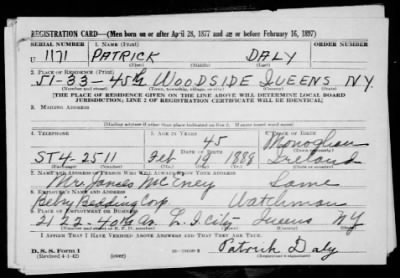 REGISTRATION CARD—(Men born on or after April 28, 1877 and on or before February 16, 1897)
SERIAL NUMBER 1. NAME (Print)
U 1171 PATRICK DALY
(First) (Middle) (Last)
2. PLACE OF RESIDENCE (Print)
51-33-45th WOODSIDE QUEENS N.Y.
(Number and street) (Town, township, village, or city) (County) (State)
[THE PLACE OF RESIDENCE GIVEN ON THE LINE ABOVE WILL DETERMINE LOCAL BOARD
JURISDICTION; LINE 2 OF REGISTRATION CERTIFICATE WILL BE IDENTICAL]
3. MAILING ADDRESS
[Mailing address if other than place indicated on line 2. If same insert word same]
4. TELEPHONE 5. AGE IN YEARS
45 Monoghan
ST4-2511 Feb 19 1889 Ireland
NAME AND ADDRESS OF PERSON WHO WILL ALWAYS KNOW YOUR ADDRESS
Mr. James McEney Same
8. EMPLOYER'S NAME AND ADDRESS
Bedding Corp Watchman
9. PLACE OF EMPLOYMENT OR BUSINESS
21-22-40th Av L. I. City Queens NY
(Number and street or R. F. D. number) (Town) (County) (State)
I AFFIRM THAT I HAVE VERIFIED ABOVE ANSWERS AND THAT THEY ARE TRUE.
D. S. S. Form 1
(Revised 4-1-42) (over)
Patrick Daly